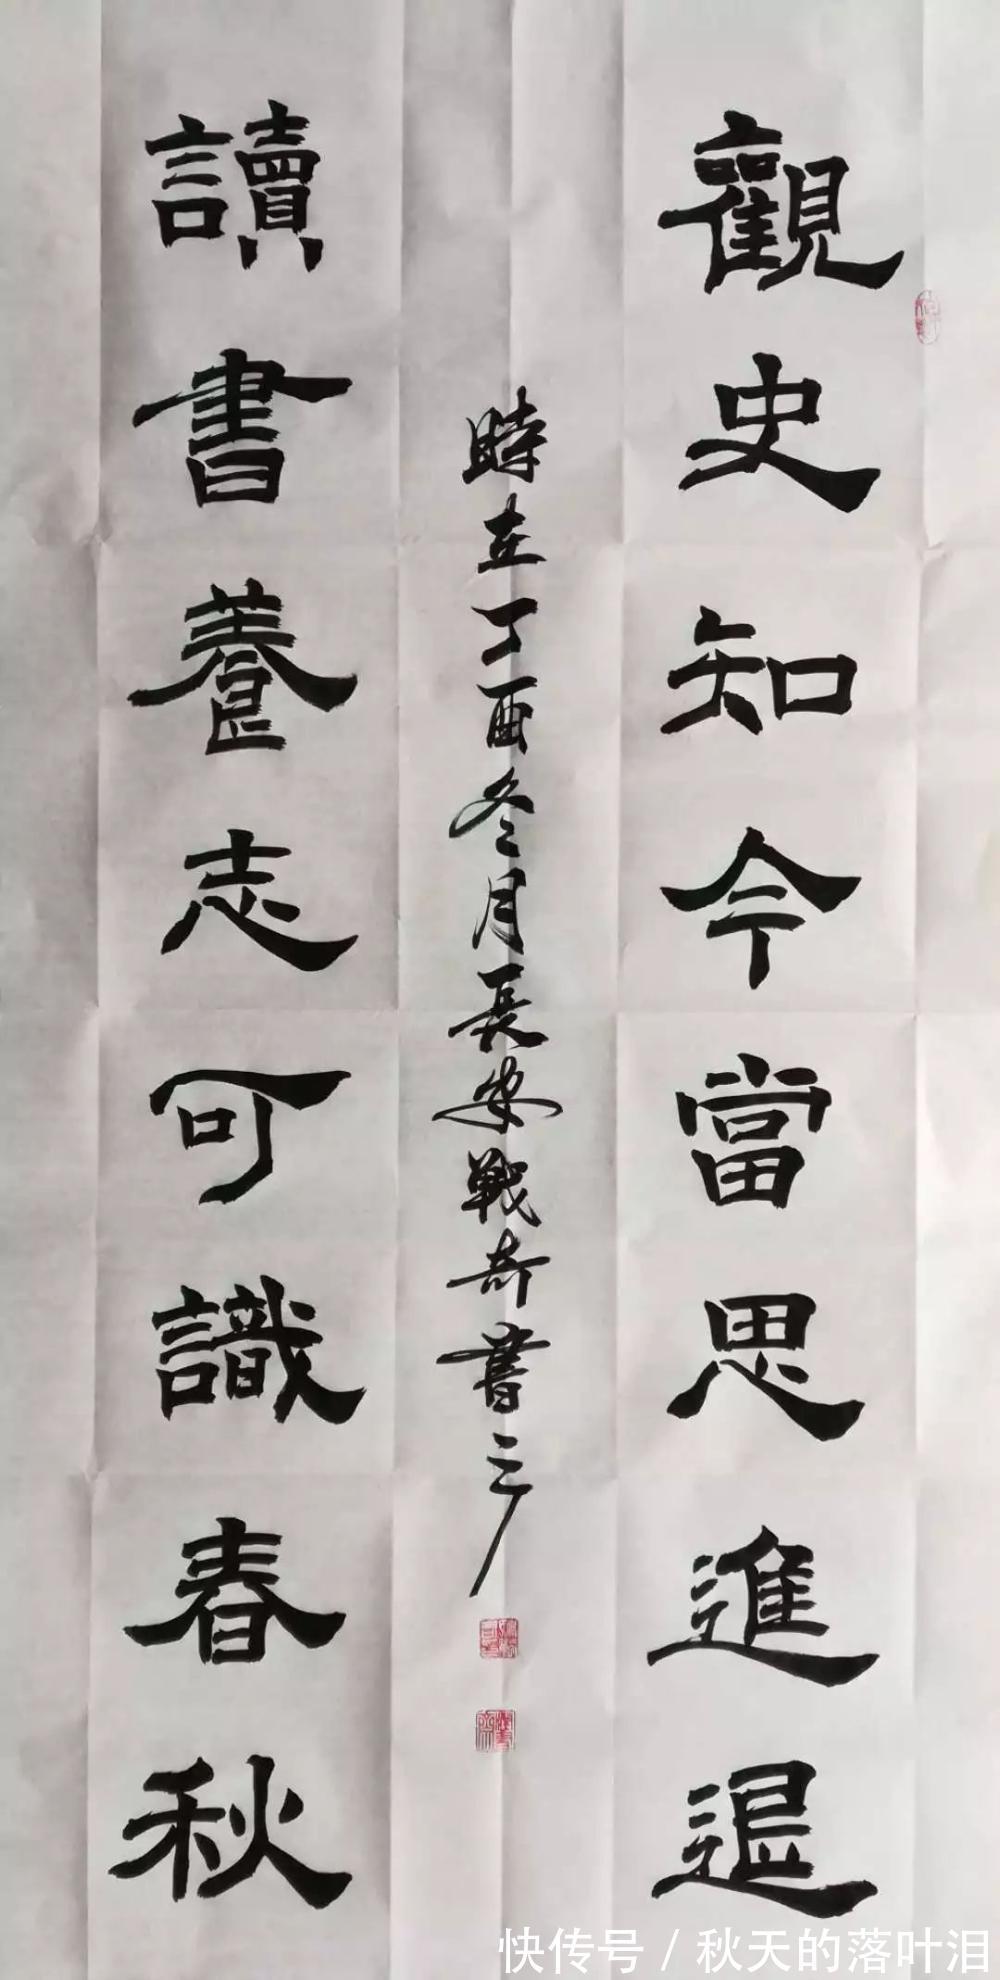 觀史知今當思進退
讀書養志可識春秋
時在丁酉冬月長安戰奇書
快传号 / 秋天的落叶泪